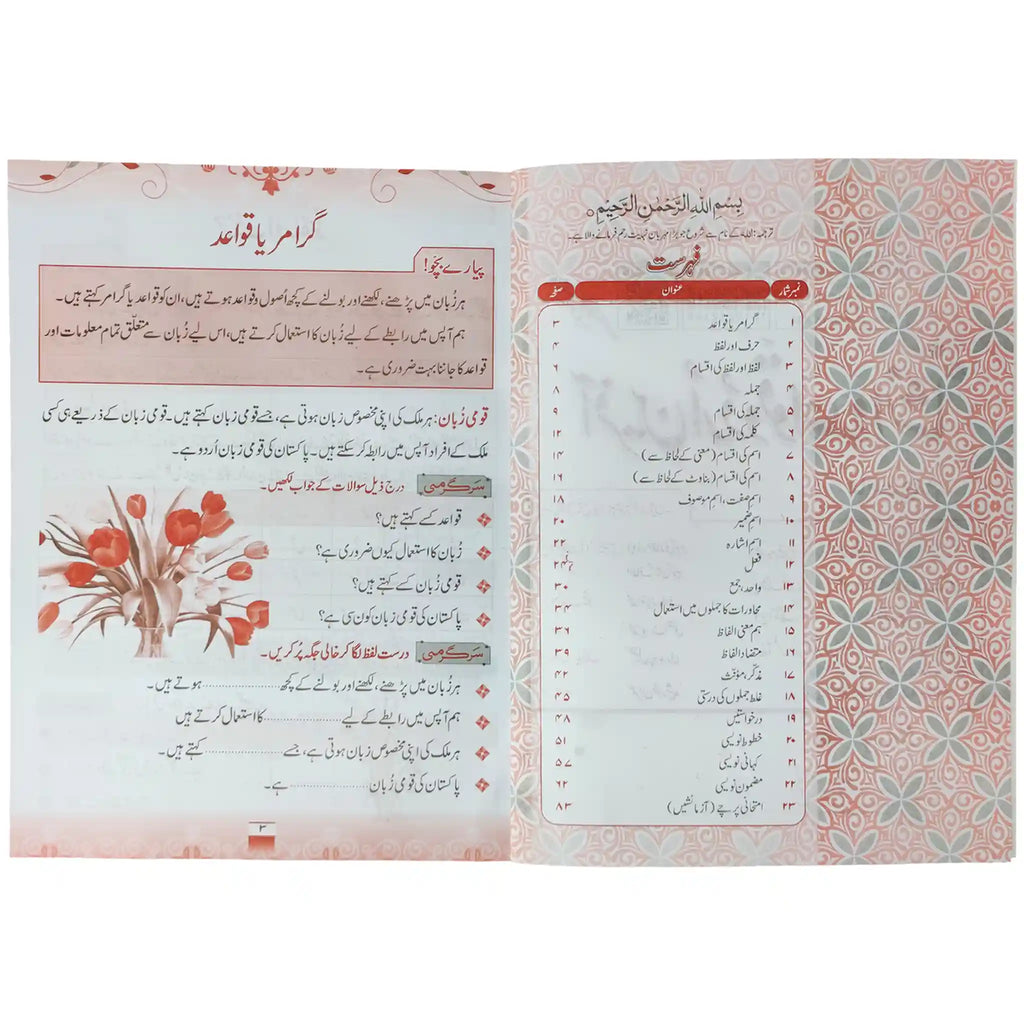 بِسْمِ اللہِ الرَّحْمٰنِ الرَّحِیْمِ
ترجمہ: اللہ کے نام سے شروع جو بڑا مہربان نہایت رحم فرمانے والا ہے۔
فہرست
نمبر شمار عنوان صفحہ
۱ گرامر یا قواعد ۳
۲ حرف اور لفظ ۴
۳ لفظ اور لفظ کی اقسام ۶
۴ جملہ ۸
۵ جملہ کی اقسام ۹
۶ کلمہ کی اقسام ۱۲
۷ اسم کی اقسام (معنی کے لحاظ سے) ۱۴
۸ اسم کی اقسام (بناوٹ کے لحاظ سے) ۱۶
۹ اسم صفت، اسم موصوف ۱۸
۱۰ اسم ضمیر ۲۰
۱۱ اسم اشارہ ۲۲
۱۲ فعل
۱۳ واحد، جمع ۳۰
۱۴ محاورات کا جملوں میں استعمال ۳۴
۱۵ ہم معنی الفاظ ۳۶
۱۶ متضاد الفاظ ۳۹
۱۷ مذکر، مؤنث ۴۲
۱۸ غلط جملوں کی درستی ۴۵
۱۹ درخواستیں ۴۸
۲۰ خطوط نویسی ۵۱
۲۱ کہانی نویسی ۵۷
۲۲ مضمون نویسی ۶۲
۲۳ امتحانی پرچے (آزمائشیں) ۸۳
گرامر یا قواعد
پیارے بچو!
ہر زُبان میں پڑھنے، لکھنے اور بولنے کے کچھ اُصول و قواعد ہوتے ہیں، ان کو قواعد یا گرامر کہتے ہیں۔
ہم آپس میں رابطے کے لیے زُبان کا استعمال کرتے ہیں، اس لیے زُبان سے متعلّق تمام معلومات اور
قواعد کا جاننا بہت ضروری ہے۔
قومی زُبان: ہر ملک کی اپنی مخصوص زبان ہوتی ہے، جسے قومی زبان کہتے ہیں۔ قومی زبان کے ذریعے ہی کسی
ملک کے افراد آپس میں رابطہ کر سکتے ہیں۔ پاکستان کی قومی زبان اُردو ہے۔
سرگرمی درج ذیل سوالات کے جواب لکھیں۔
قواعد کسے کہتے ہیں؟
زُبان کا استعمال کیوں ضروری ہے؟
قومی زُبان کسے کہتے ہیں؟
پاکستان کی قومی زبان کون سی ہے؟
سرگرمی درست لفظ لگا کر خالی جگہ پر کریں۔
ہر زُبان میں پڑھنے، لکھنے اور بولنے کے کچھ .................. ہوتے ہیں۔
ہم آپس میں رابطے کے لیے .................. کا استعمال کرتے ہیں
ہر ملک کی اپنی مخصوص زبان ہوتی ہے، جسے .................. کہتے ہیں۔
پاکستان کی قومی زبان .................. ہے۔
۳